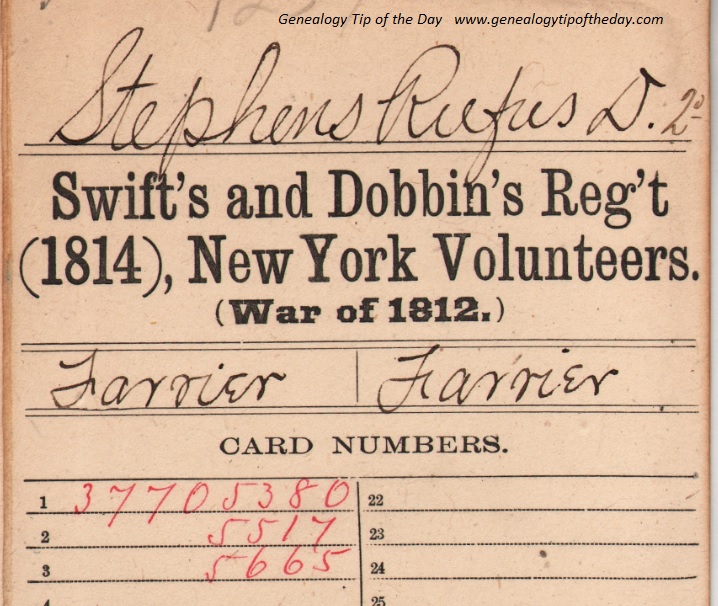 Genealogy Tip of the Day www.genealogytipoftheday.com
Stephens Rufus D. 2d
Swift's and Dobbin's Reg't
(1814), New York Volunteers.
(War of 1812.)
Farrier | Farrier
CARD NUMBERS.
1 37705380 22
2 5517 23
3 5665 24
4 25